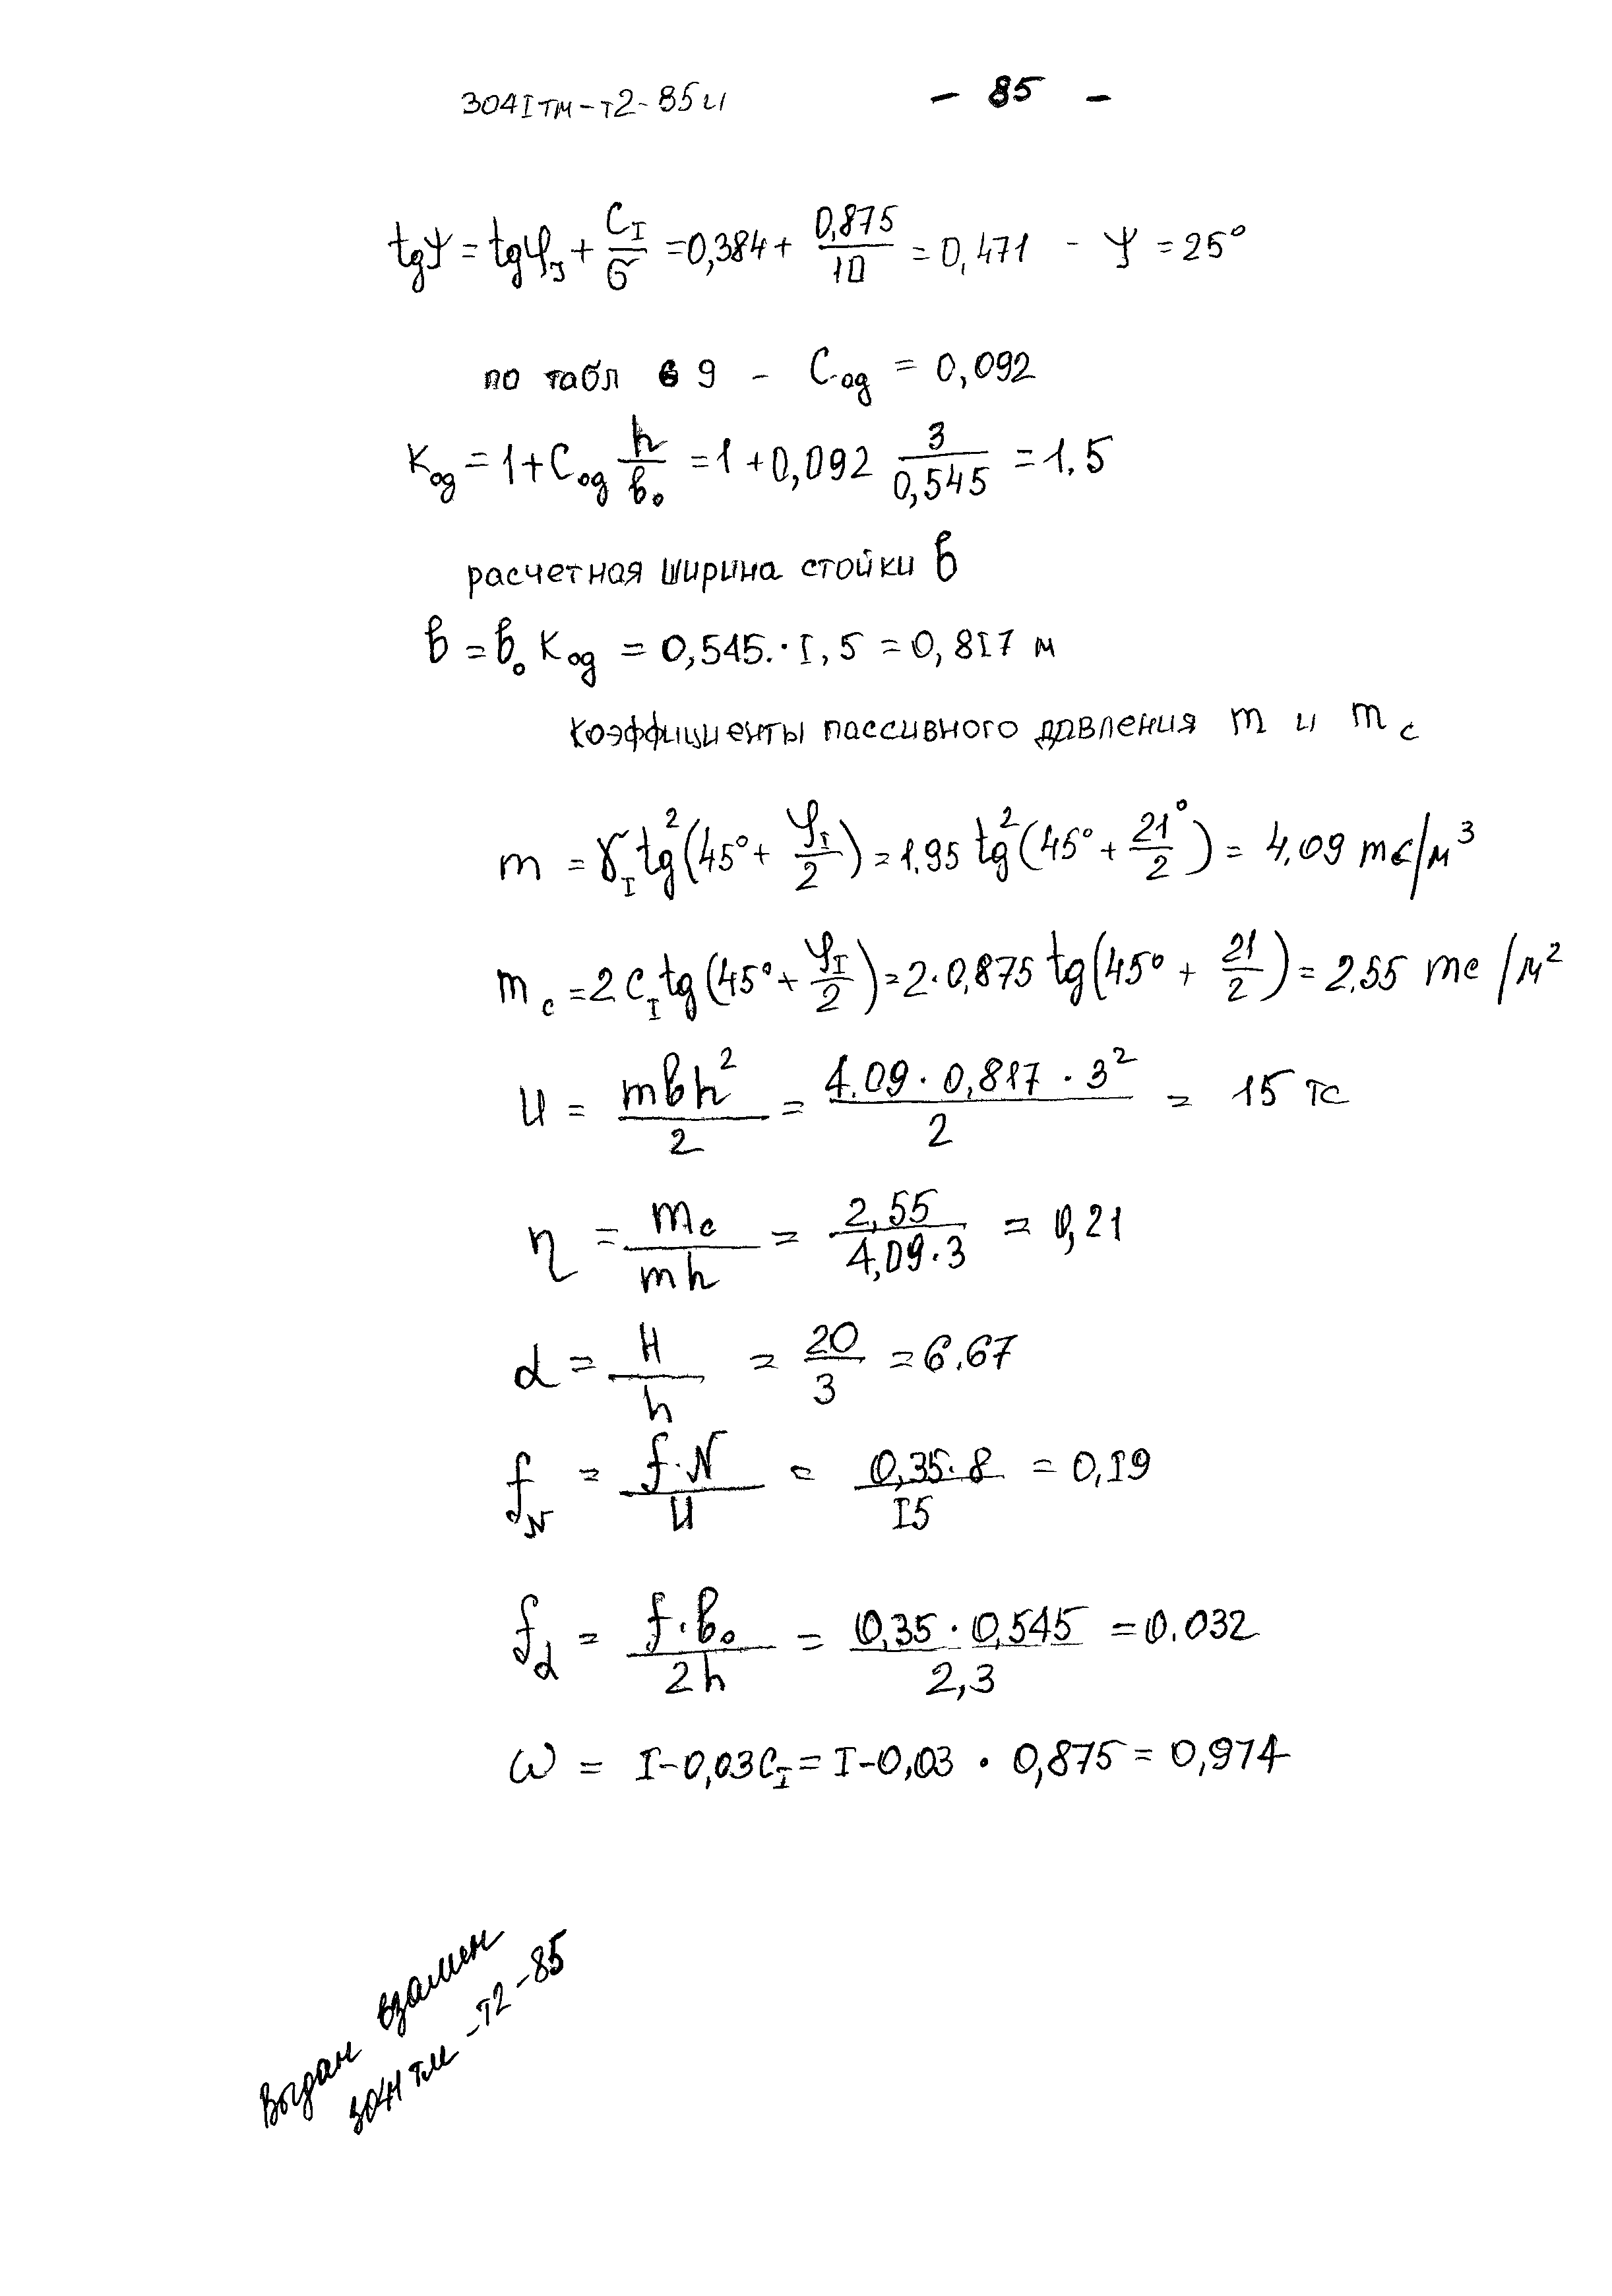 3041тм-т2-85и - 85 -
tgψ = tgφ_I + C_I/σ = 0,384 + 0,875/10 = 0,471 - ψ = 25°
по табл 9 - C_од = 0,092
K_од = 1 + C_од h/b_0 = 1 + 0,092 3/0,545 = 1.5
расчетная ширина стойки b
b = b_0 K_од = 0,545 · I,5 = 0,8I7 м
Коэффициенты пассивного давления m и m_c
m = γ_I tg²(45° + φ_I/2) = 1.95 tg²(45° + 21°/2) = 4.09 тс/м³
m_c = 2 C_I tg(45° + φ_I/2) = 2 · 0,875 tg(45° + 21/2) = 2.55 тс/м²
U = mbh²/2 = 4.09 · 0,817 · 3²/2 = 15 тс
η = m_c/mh = 2,55/4,09·3 = 0,21
α = H/h = 20/3 = 6.67
f_N = f·N/U = 0,35·8/I5 = 0,I9
f_d = f·b_0/2h = 0,35 · 0,545/2,3 = 0.032
ω = I-0,03C_I = I-0,03 · 0,875 = 0,974
Выдан взамен
3041тм-т2-85